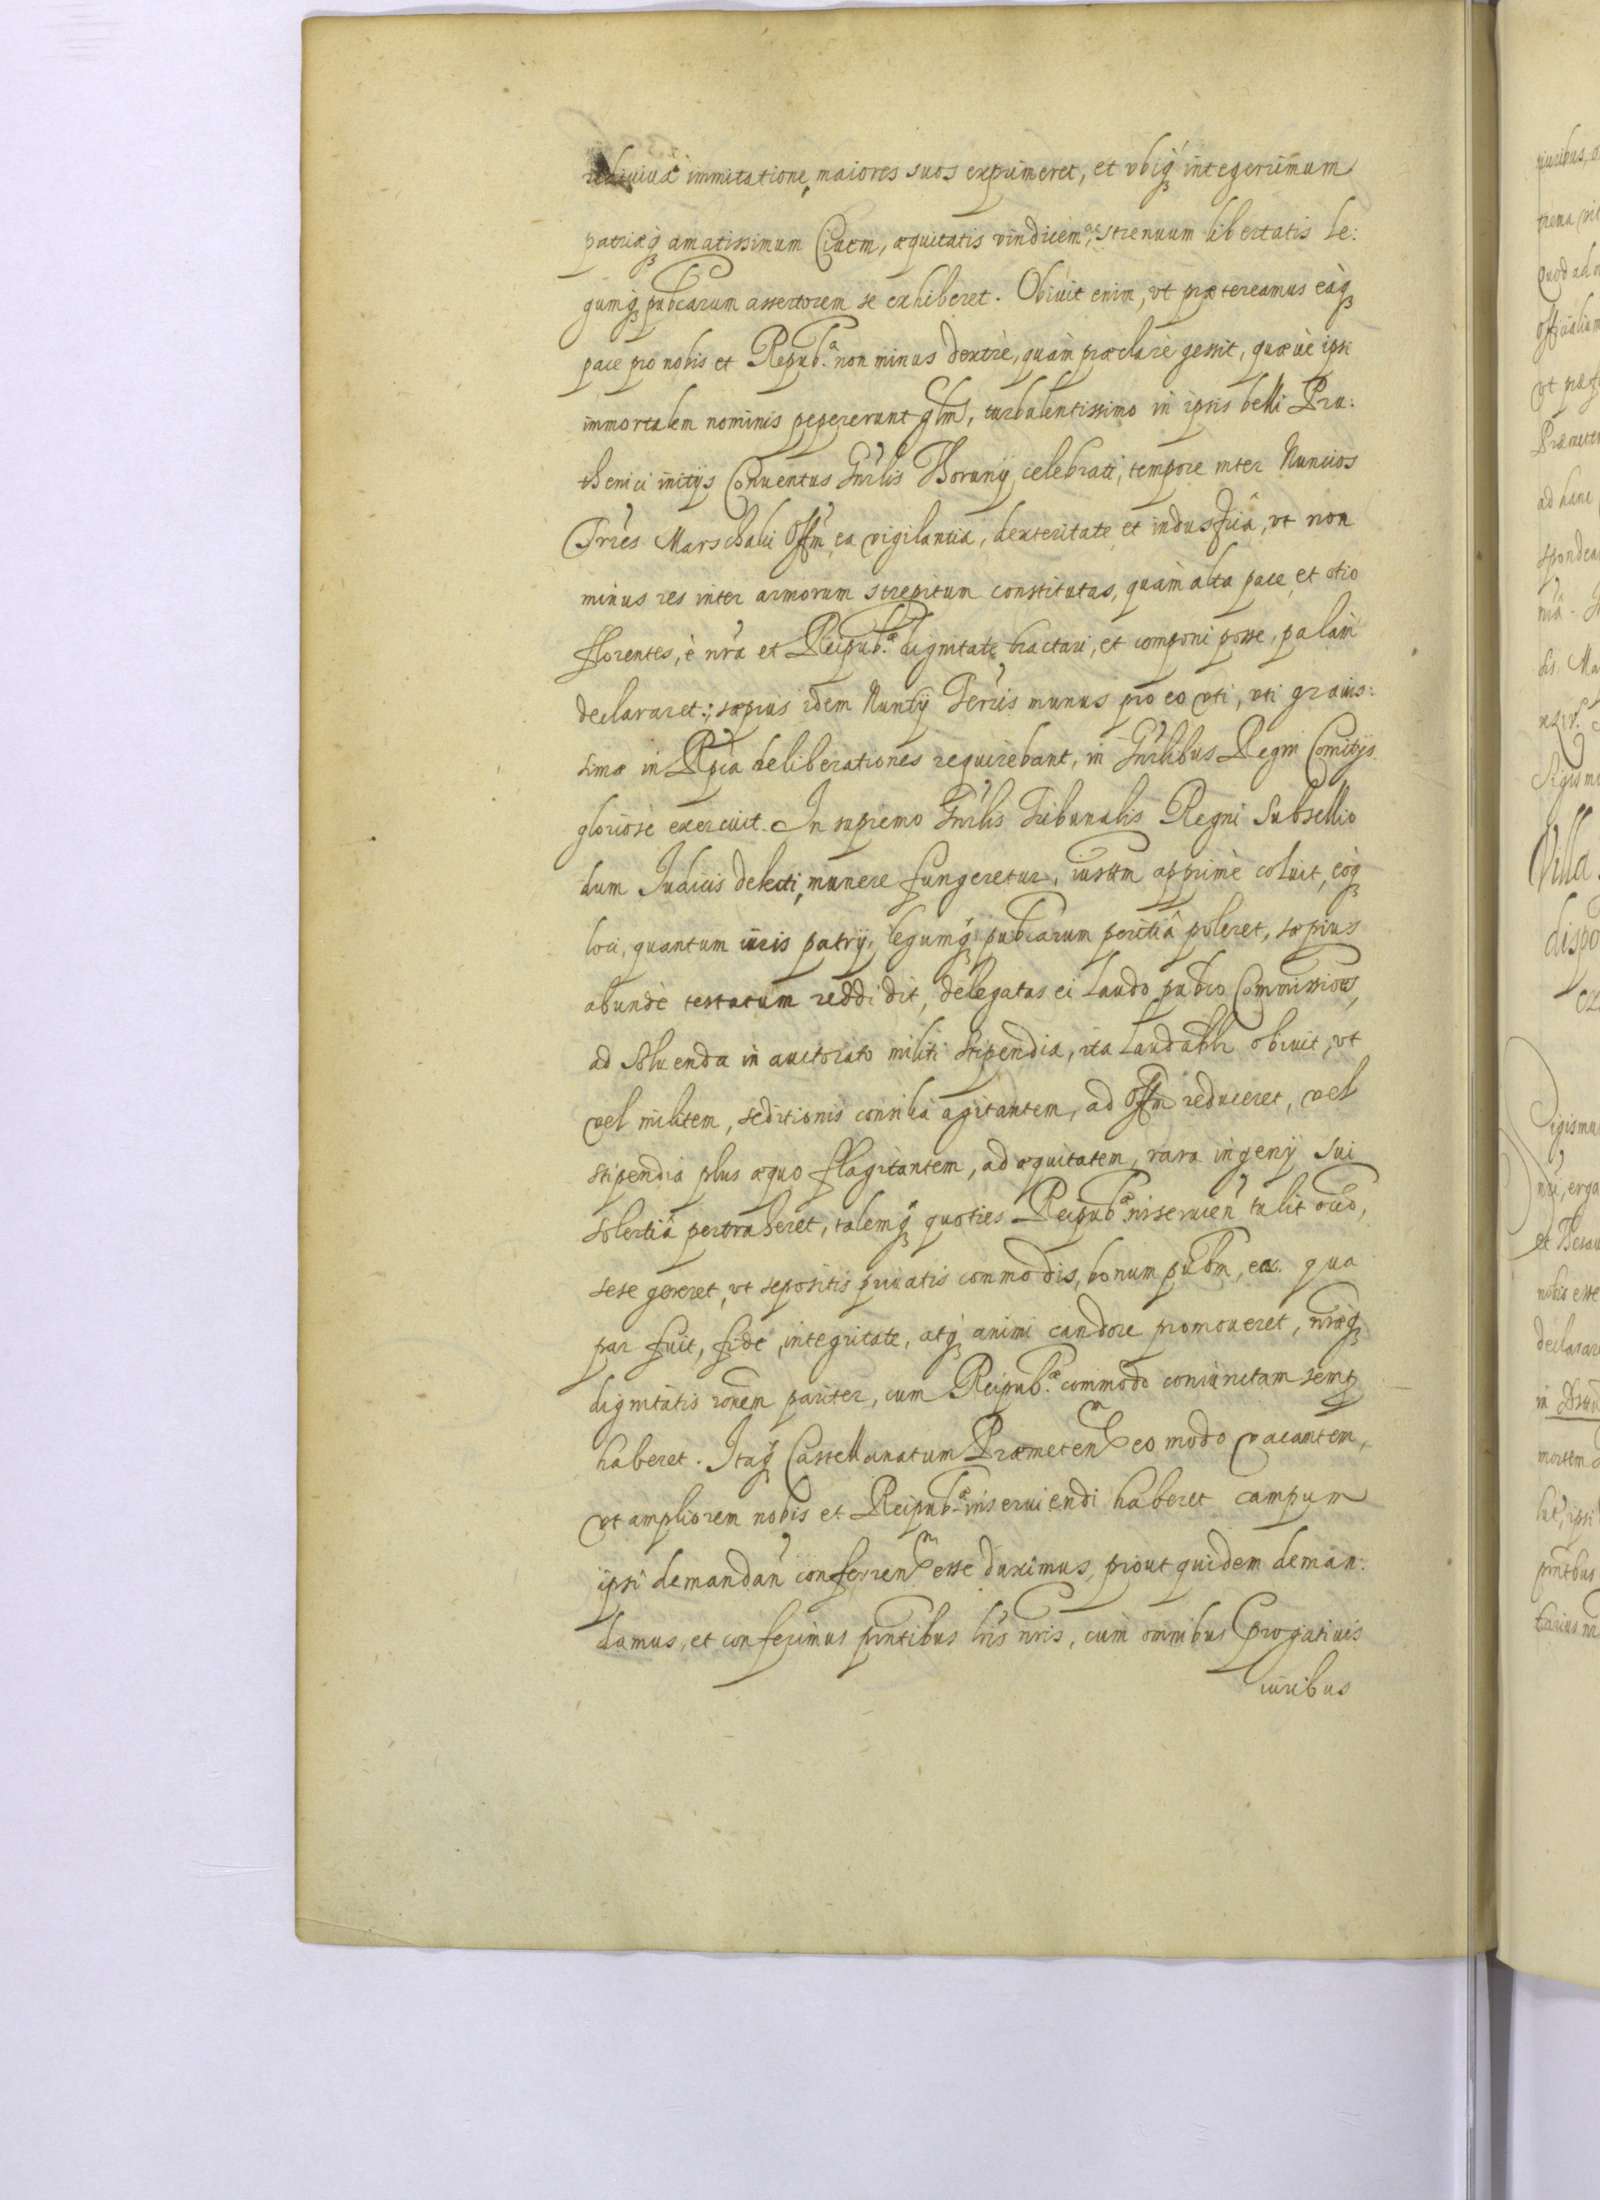 rediuiua immitatione, maiores suos exprimeret, et vbiq₃ integerrimum
patriæq₃ amatissimum Ciuem, æquitatis vindicem, ac strenuum libertatis le:
gumq₃ pubcarum assertorem se exhiberet. Obiuit enim, vt prætereamus eaq₃
pace pro nobis et Repub.ᵃ non minus dextrè, quàm præclarè gessit, quæuè ipsi
immortalem nominis pepererunt glm̃, turbulentissimo in ipsis belli Pru:
thenici initijs Conuentus Gnr̃lis Thorunij celebrati, tempore inter Nuncios
Trr̃es Marschalci Offm̃, ea vigilantia, dexteritate et industria, vt non
minus res inter armorum strepitum constitutas, quàm alta pace, et otio
florentes, è nr̃a et Reipub.ᵃ dignitate tractari, et componi posse, palàm
declararet; sæpius idem Nuntij Terr̃is munus pro eo vti, vti grauis:
simæ in Rp̃ca deliberationes requirebant, in Gnr̃libus Regni Comitijs
gloriosè exercuit. In supremo Gnr̃lis Tribunalis Regni Subsellio
dum Iudicis delecti, munere fungeretur, iustm̃ apprimè coluit, eoq₃
loci, quantum iuris patrij, legumq₃ pubcarum peritiâ polleret, sæpius
abundè testatum reddidit, delegatas ei Laudo pubco Commissiones,
ad soluenda in auctorato militi stipendia, ita laudablr obiuit, vt
vel militem, seditionis consilia agitantem, ad Offm̃ reduceret, vel
stipendia plus æquo flagitantem, ad æquitatem, rara ingenij sui
solertiâ pertraheret, talemq₃ quoties Reipub.ᵃ inseruien̄ tulit occõ,
sese gereret, vt sepositis priuatis commodis, bonum pubm̃, ea qua
par fuit, fide, integritate, atq₃ animi candore promoueret, nr̃æq₃
dignitatis rõnem pariter, cum Reipub.ᵃ commodo coniunctam semp
haberet. Itaq₃ Castellanatum Præmeten̄ eo modo vacantem,
vt ampliorem nobis et Reipub.ᵃ inseruiendi haberet campum
ipsi demandan̄ conferren̄ᵐ esse duximus, prout quidem deman:
damus, et conferimus pn̄tibus lr̃is nr̃is, cum omnibus Progatiuis
iuribus